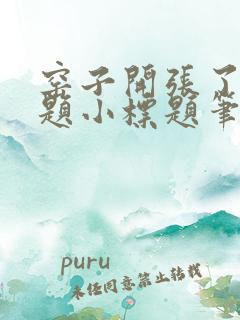 窑子開張了
題小標題筆
puru
未经同意禁止转载